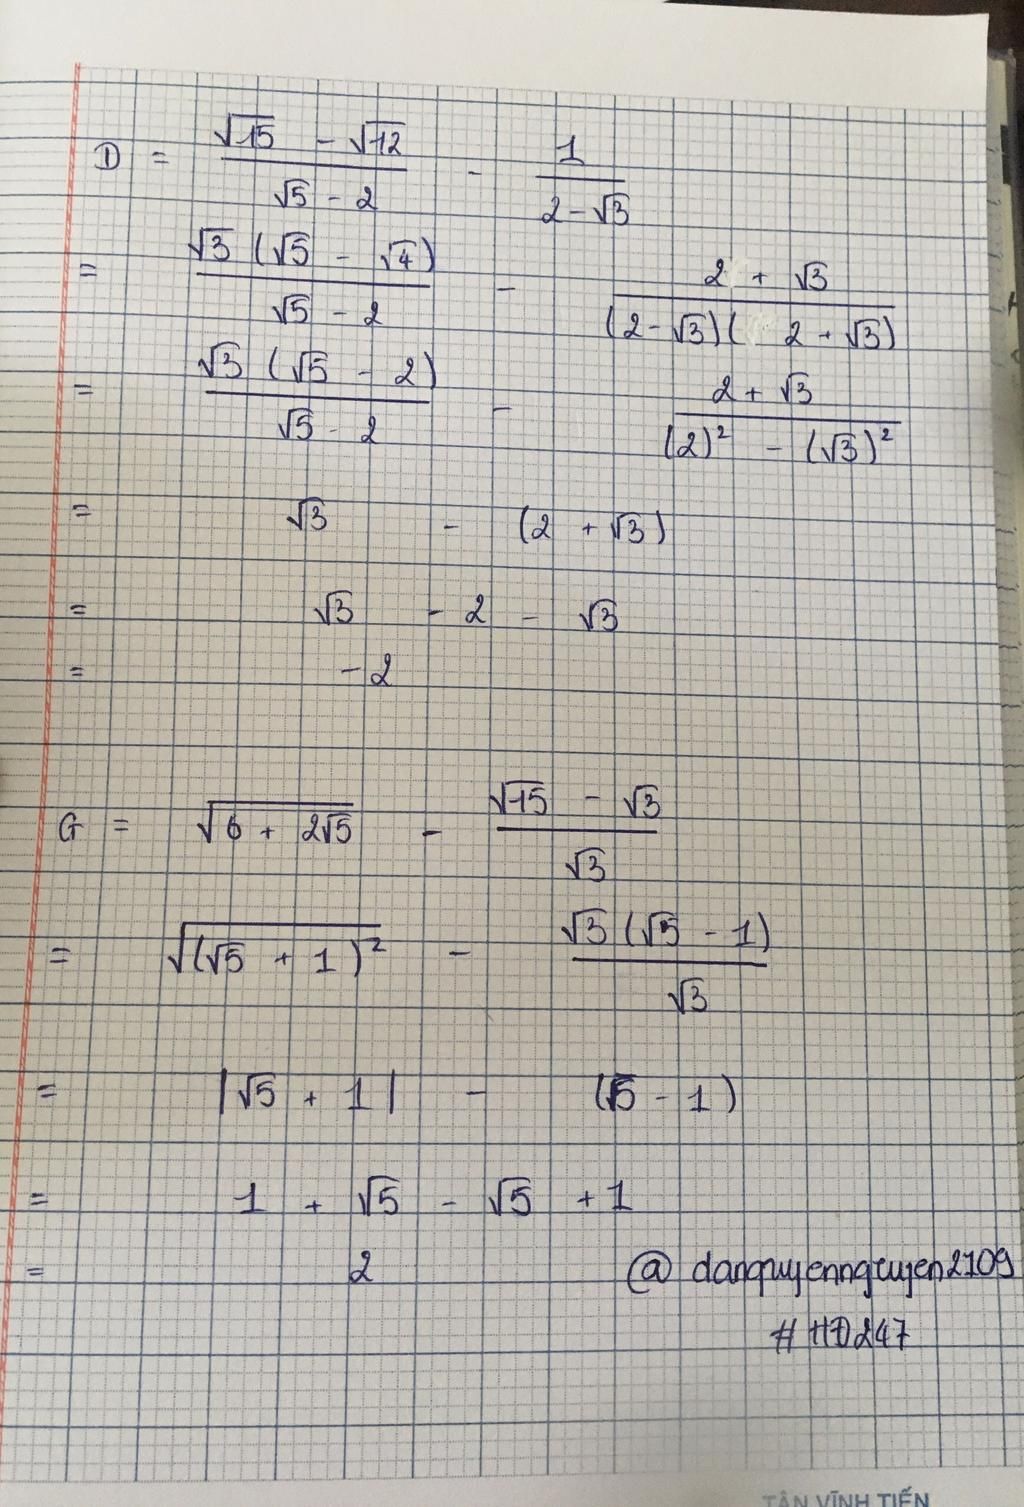 D = (√15 - √12)/(√5 - 2) - 1/(2 - √3)
= √3 (√5 - √4)/(√5 - 2) - (2 + √3)/((2 - √3)(2 + √3))
= √3 (√5 - 2)/(√5 - 2) - (2 + √3)/((2)² - (√3)²)
= √3 - (2 + √3)
= √3 - 2 - √3
= -2
G = √(6 + 2√5) - (√15 - √3)/√3
= √((√5 + 1)²) - √3 (√5 - 1)/√3
= |√5 + 1| - (√5 - 1)
= 1 + √5 - √5 + 1
= 2
@ danquyennguyen2109
# HĐ247
TÂN VĨNH TIẾN